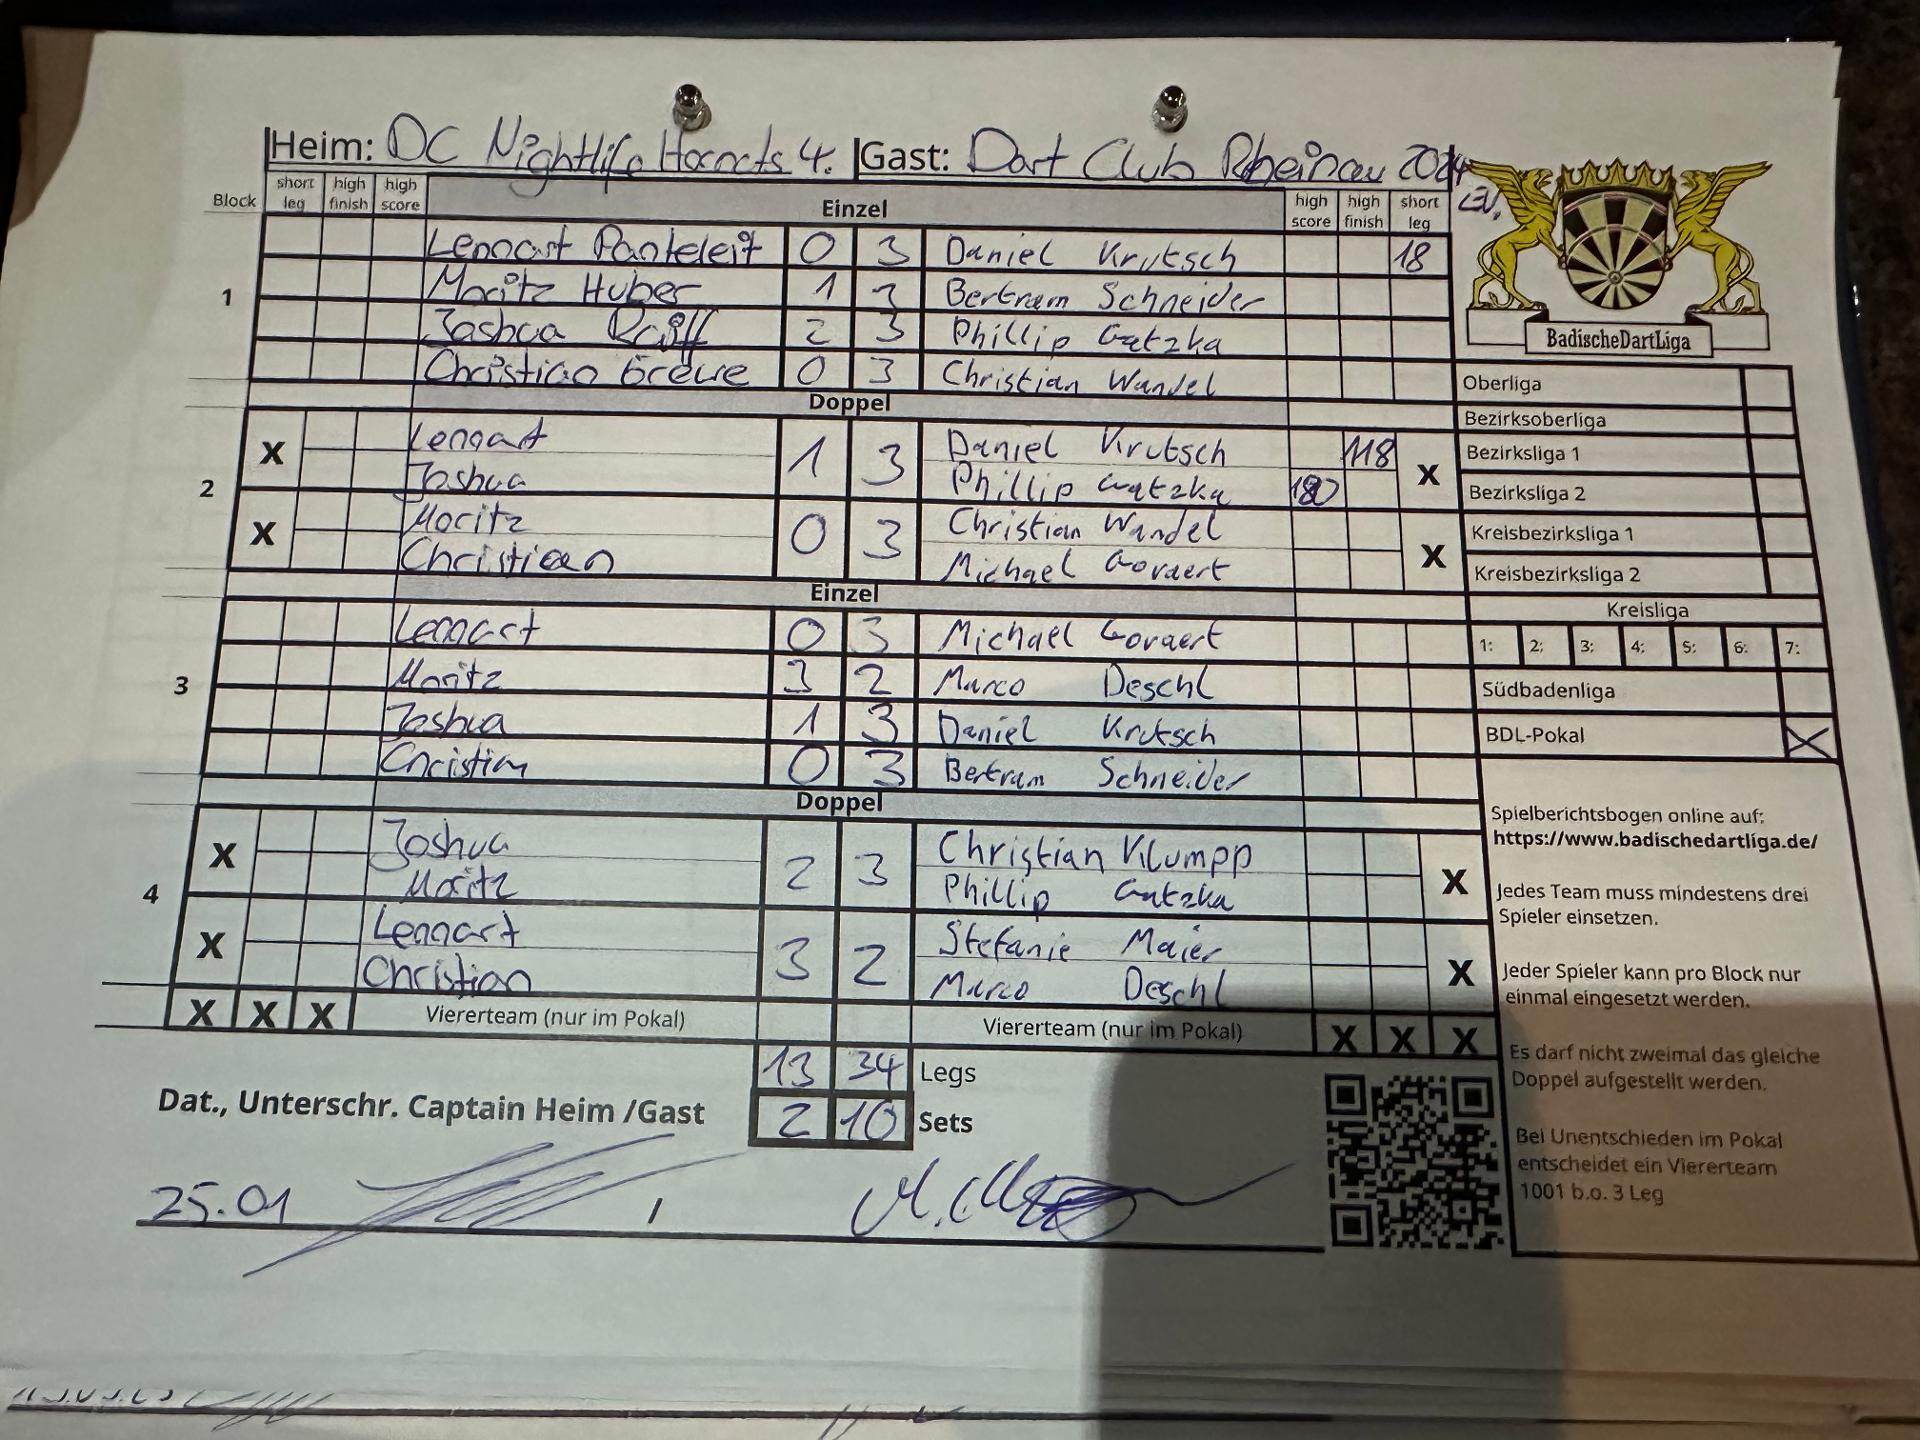 Heim: DC Nightlife Hornets 4. Gast: Dart Club Rheinau 2024 e.V.
Block short leg high finish high score Einzel high score high finish short leg
1
Lennart Panteleit 0 3 Daniel Krutsch 18
Moritz Huber 1 3 Bertram Schneider
Joshua Reiff 2 3 Phillip Gatzka
Christian Grewe 0 3 Christian Wandel
Doppel
2
X Lennart 1 3 Daniel Krutsch 118 X
Joshua Phillip Gatzka 180
X Moritz 0 3 Christian Wandel X
Christian Michael Govaert
Einzel
3
Lennart 0 3 Michael Govaert
Moritz 3 2 Marco Deschl
Joshua 1 3 Daniel Krutsch
Christian 0 3 Bertram Schneider
Doppel
4
X Joshua 2 3 Christian Klumpp X
Moritz Phillip Gatzka
X Lennart 3 2 Stefanie Maier X
Christian Marco Deschl
X X X Viererteam (nur im Pokal) Viererteam (nur im Pokal) X X X
13 34 Legs
Dat., Unterschr. Captain Heim /Gast 2 10 Sets
25.01 /
BadischeDartLiga
Oberliga
Bezirksoberliga
Bezirksliga 1
Bezirksliga 2
Kreisbezirksliga 1
Kreisbezirksliga 2
Kreisliga
1: 2: 3: 4: 5: 6: 7:
Südbadenliga
BDL-Pokal X
Spielberichtsbogen online auf:
https://www.badischedartliga.de/
Jedes Team muss mindestens drei
Spieler einsetzen.
Jeder Spieler kann pro Block nur
einmal eingesetzt werden.
Es darf nicht zweimal das gleiche
Doppel aufgestellt werden.
Bei Unentschieden im Pokal
entscheidet ein Viererteam
1001 b.o. 3 Leg